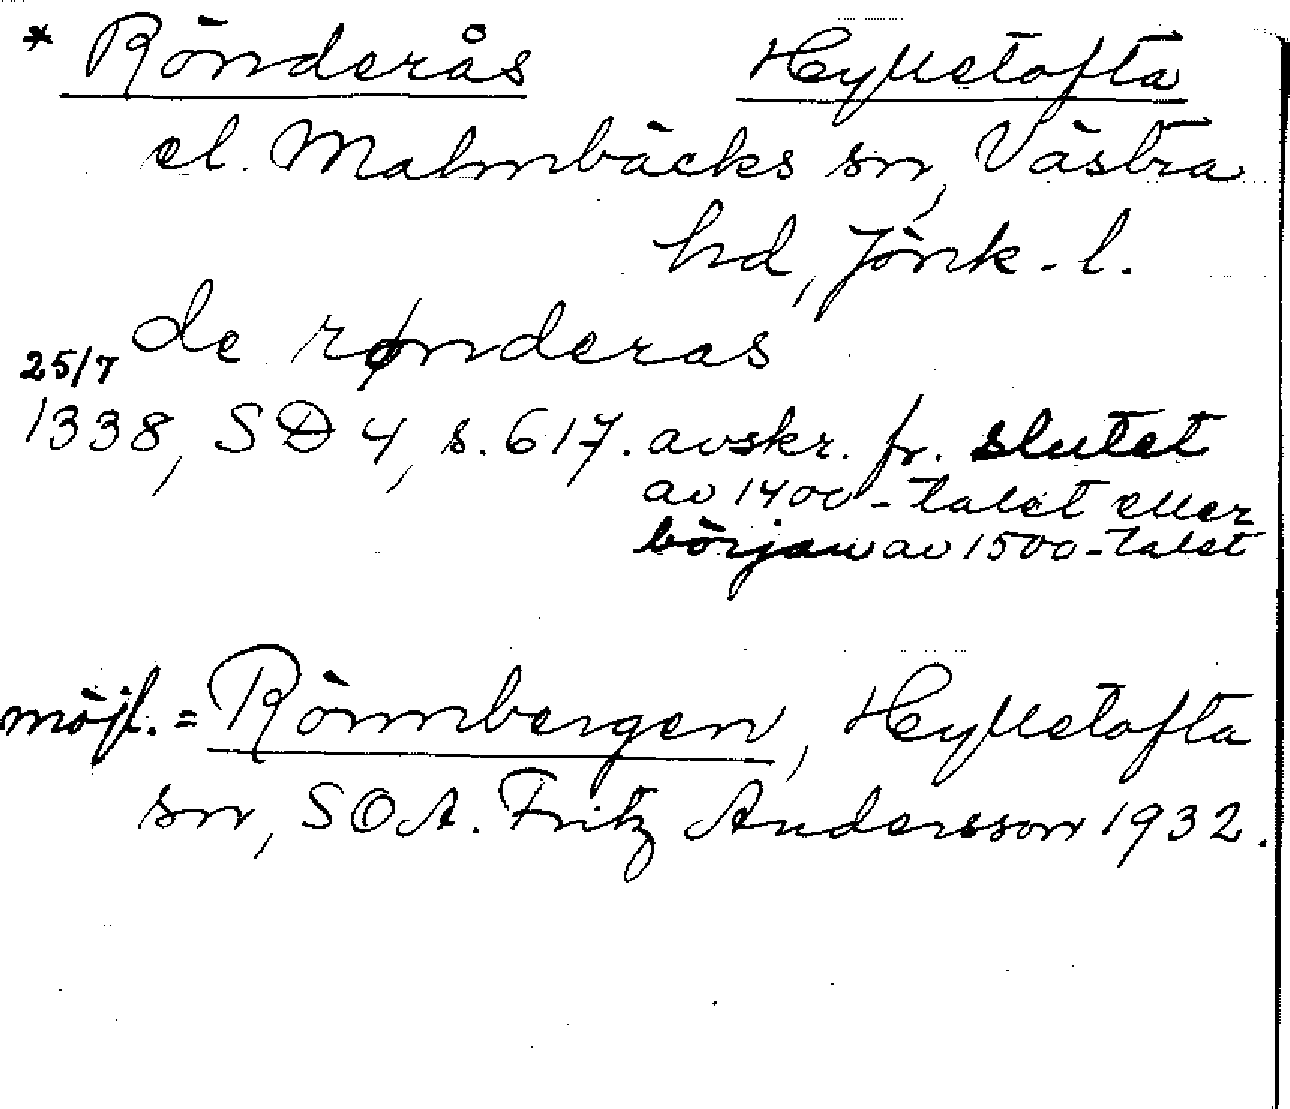 * Rönderås Hyltetofta
el. Malmbäcks sn, Västra
hd, Jönk. l.
de rønderas
25/7
1338, SD 4, s. 617. avskr. fr. slutet
av 1400-talet eller
början av 1500-talet
möjl. = Rörnnbergen, Hyltetofta
sn, SOA. Fritz Andersson 1932.